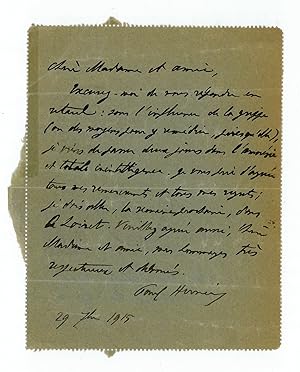 Chère Madame et amie,
Excusez-moi de vous répondre en
retard : sous l'influence de la grippe
(ou des moyens pour y remédier,
je viens de passer deux jours dans l'
et totale inintelligence. Je vous prie d'agréer
tous mes remerciements et tous mes regrets ;
je dois aller, la semaine prochaine, dans
le Loiret. Veuillez agréer aussi, Chère
Madame et amie, mes hommages très
respectueux et dévoués.
Paul Hervieu
29 1915